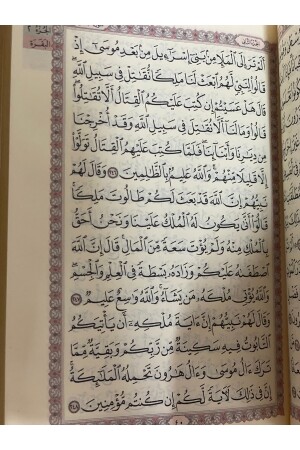 الجزء ٢
البقرة
الجزء الثاني
أَلَمْ تَرَ إِلَى ٱلْمَلَإِ مِنۢ بَنِىٓ إِسْرَٰٓءِيلَ مِنۢ بَعْدِ مُوسَىٰٓ إِذْ
قَالُوا۟ لِنَبِىٍّ لَّهُمُ ٱبْعَثْ لَنَا مَلِكًا نُّقَٰتِلْ فِى سَبِيلِ ٱللَّهِ
قَالَ هَلْ عَسَيْتُمْ إِن كُتِبَ عَلَيْكُمُ ٱلْقِتَالُ أَلَّا تُقَٰتِلُوا۟
قَالُوا۟ وَمَا لَنَآ أَلَّا نُقَٰتِلَ فِى سَبِيلِ ٱللَّهِ وَقَدْ أُخْرِجْنَا
مِن دِيَٰرِنَا وَأَبْنَآئِنَا فَلَمَّا كُتِبَ عَلَيْهِمُ ٱلْقِتَالُ تَوَلَّوْا۟
إِلَّا قَلِيلًا مِّنْهُمْ وَٱللَّهُ عَلِيمٌۢ بِٱلظَّٰلِمِينَ ٢٤٦ وَقَالَ لَهُمْ
نَبِيُّهُمْ إِنَّ ٱللَّهَ قَدْ بَعَثَ لَكُمْ طَالُوتَ مَلِكًا
قَالُوٓا۟ أَنَّىٰ يَكُونُ لَهُ ٱلْمُلْكُ عَلَيْنَا وَنَحْنُ أَحَقُّ
بِٱلْمُلْكِ مِنْهُ وَلَمْ يُؤْتَ سَعَةً مِّنَ ٱلْمَالِ قَالَ إِنَّ ٱللَّهَ
ٱصْطَفَىٰهُ عَلَيْكُمْ وَزَادَهُۥ بَسْطَةً فِى ٱلْعِلْمِ وَٱلْجِسْمِ
وَٱللَّهُ يُؤْتِى مُلْكَهُۥ مَن يَشَآءُ وَٱللَّهُ وَٰسِعٌ عَلِيمٌ ٢٤٧
وَقَالَ لَهُمْ نَبِيُّهُمْ إِنَّ ءَايَةَ مُلْكِهِۦٓ أَن يَأْتِيَكُمُ
ٱلتَّابُوتُ فِيهِ سَكِينَةٌ مِّن رَّبِّكُمْ وَبَقِيَّةٌ مِّمَّا
تَرَكَ ءَالُ مُوسَىٰ وَءَالُ هَٰرُونَ تَحْمِلُهُ ٱلْمَلَٰٓئِكَةُ
إِنَّ فِى ذَٰلِكَ لَءَايَةً لَّكُمْ إِن كُنتُم مُّؤْمِنِينَ ٢٤٨
٤٠